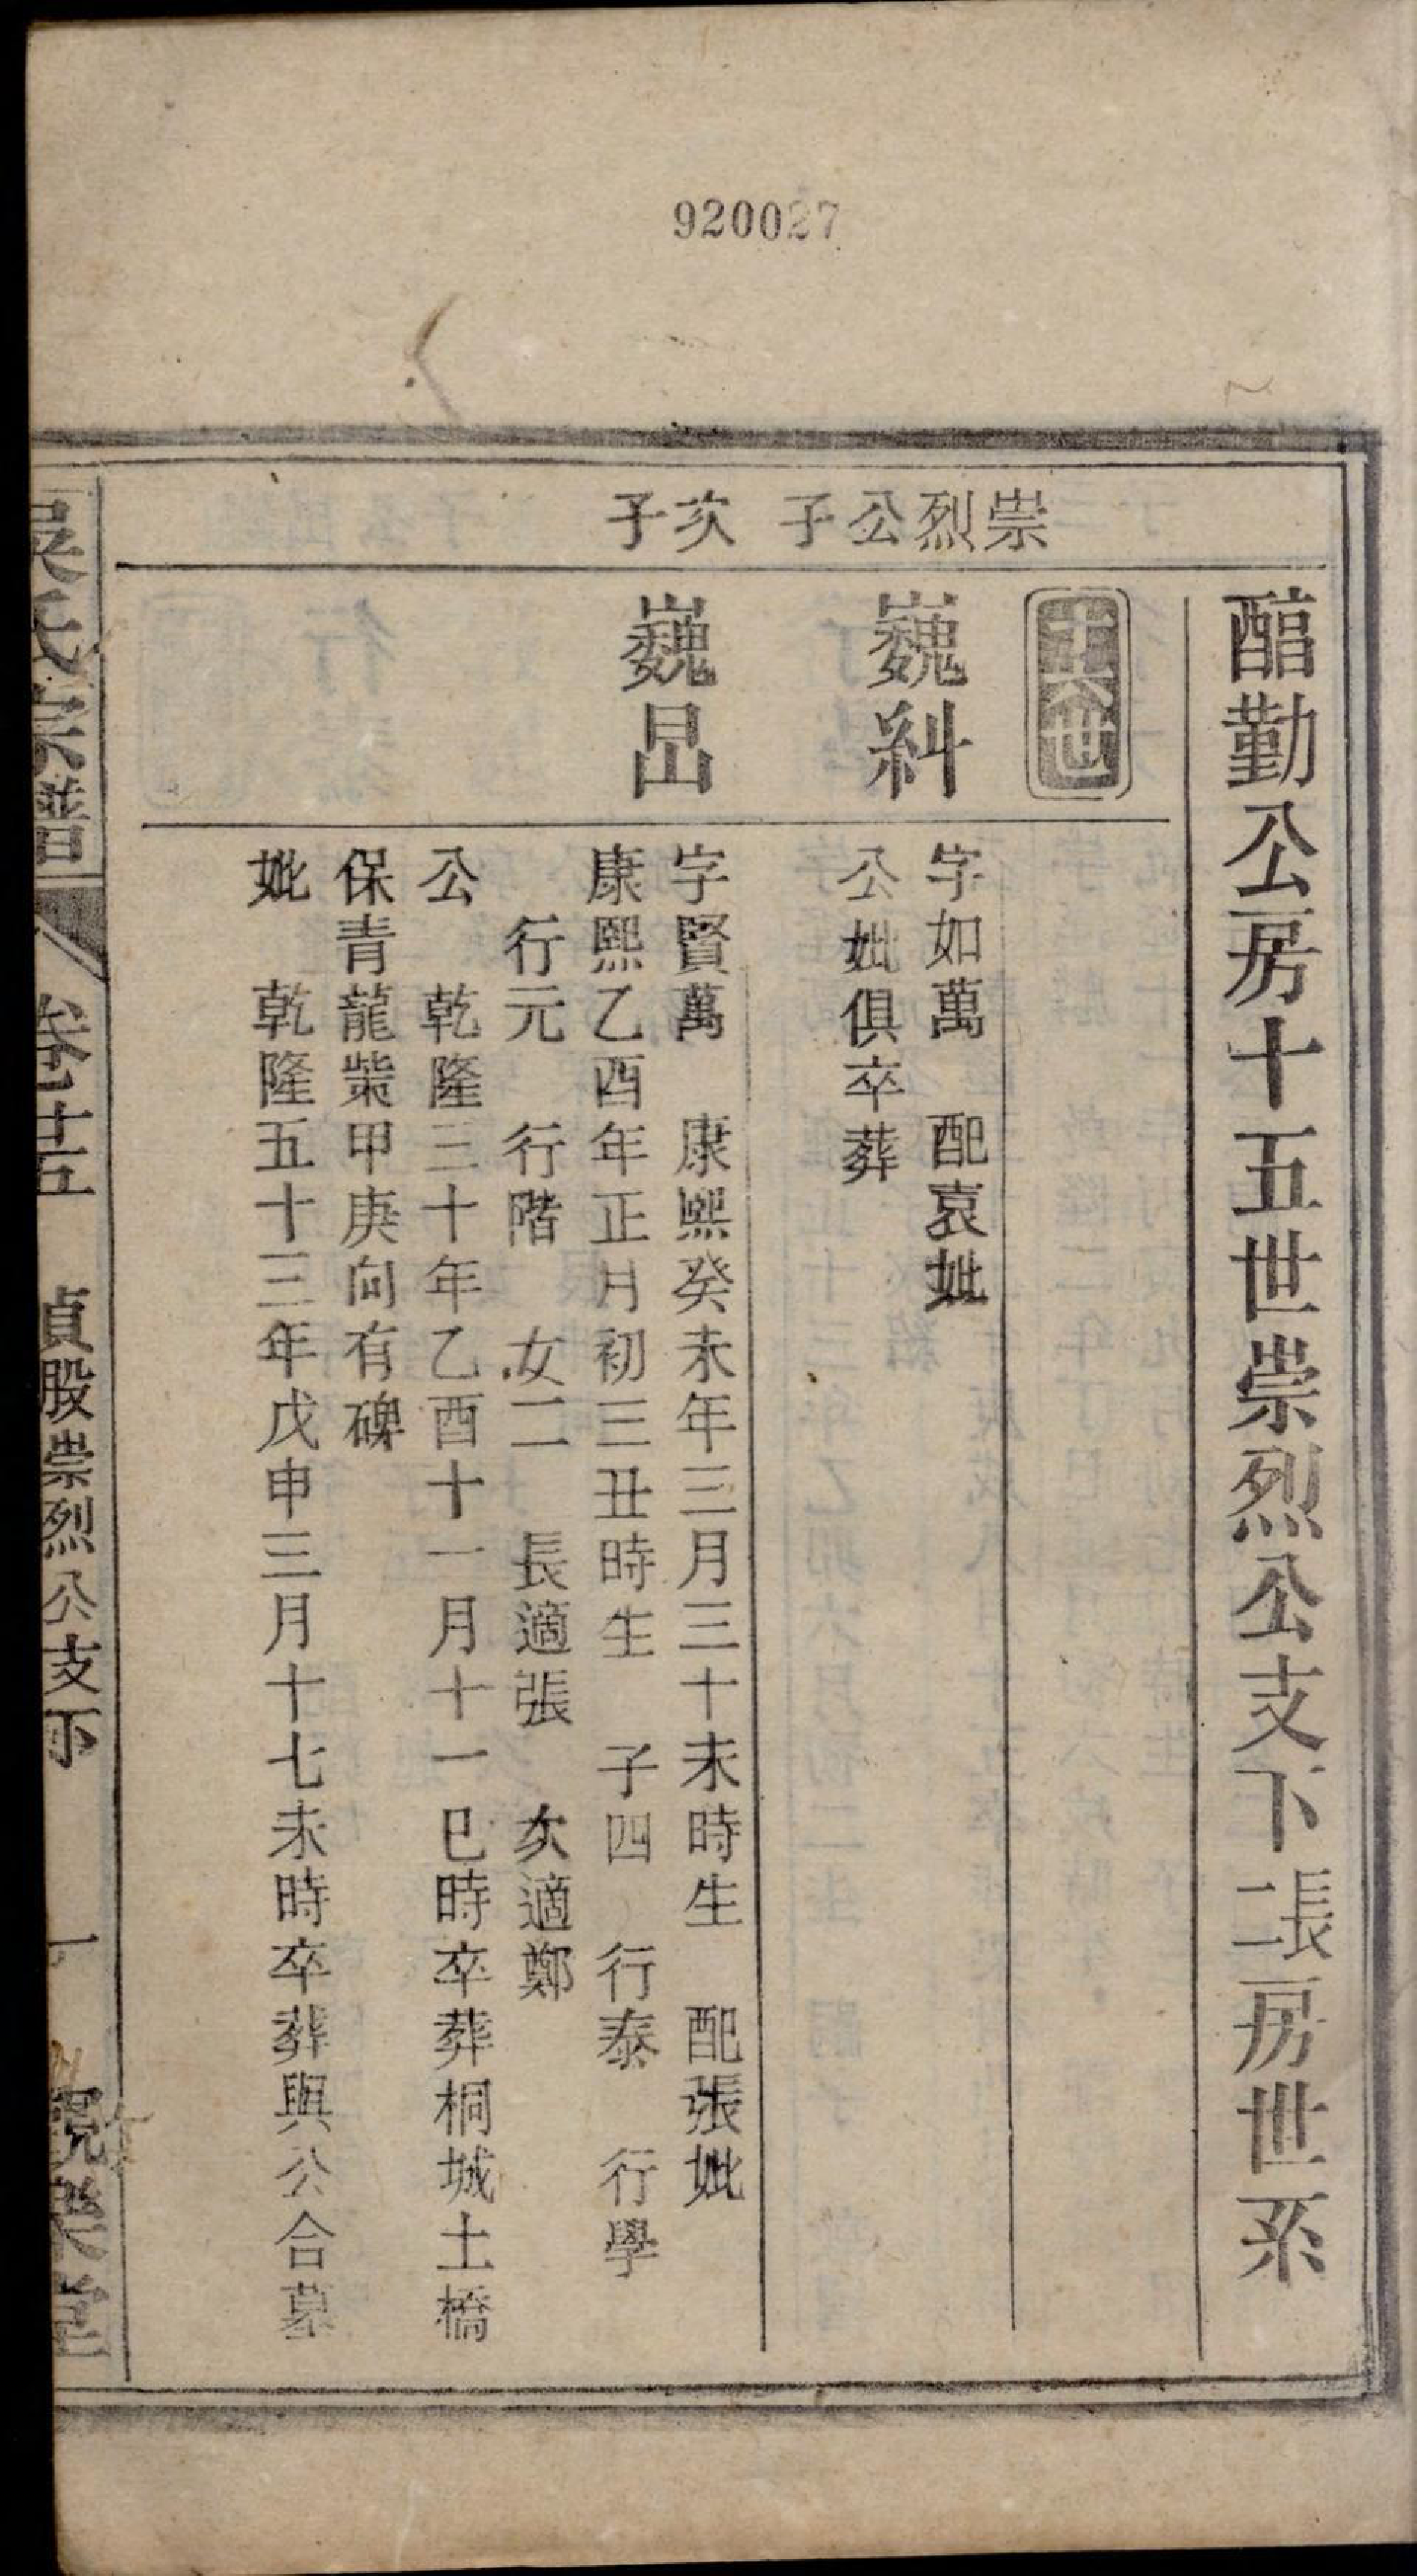 920027
醕勤公房十五世崇烈公支下長二房世系
崇烈公子
十六世
巍糾
字如萬 配袁妣
公妣俱卒葬
次子
巍昷
字賢萬 康熙癸未年三月三十未時生 配張妣
康熙乙酉年正月初三丑時生 子四 行泰 行學
行元 行階 女二 長適張 次適鄭
公 乾隆三十年乙酉十一月十一巳時卒葬桐城土橋
保青龍棠甲庚向有碑
妣 乾隆五十三年戊申三月十七未時卒葬與公合墓
吳氏宗譜 卷十五 貞股崇烈公支下 一